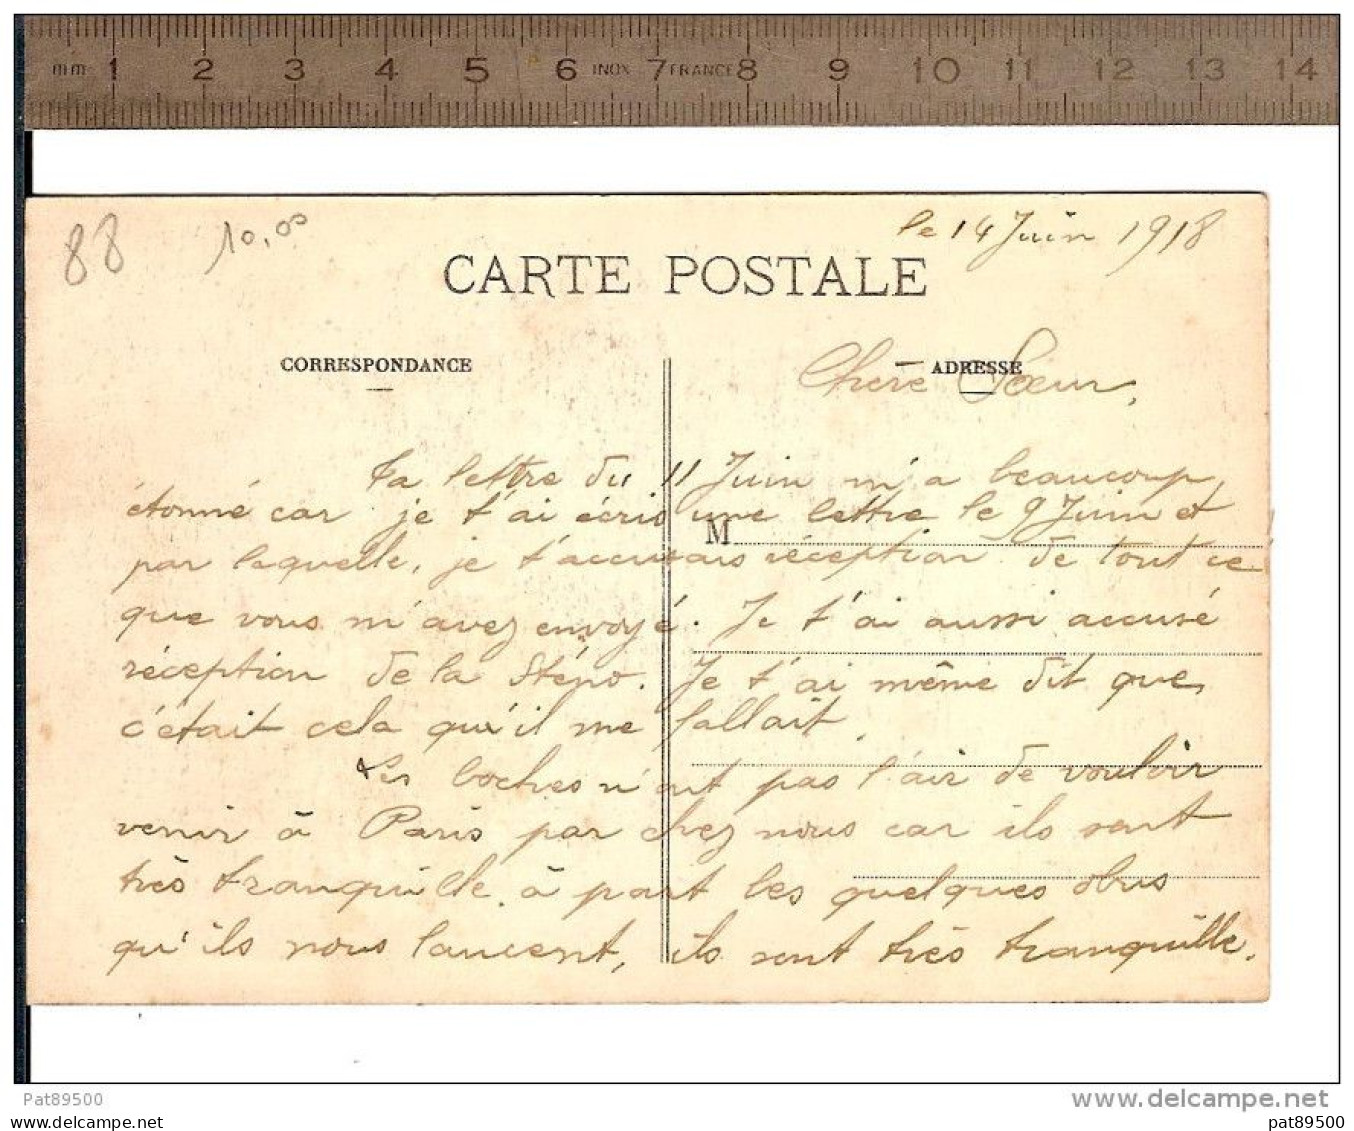 mm 1 2 3 4 5 6 INOX 7 FRANCE 8 9 10 11 12 13 14
88 10,00
le 14 Juin 1918
CARTE POSTALE
CORRESPONDANCE
ADRESSE
Chere Sœur,
Ta lettre du 11 Juin m'a beaucoup
étonné car je t'ai écris une lettre le 9 Juin et
M
par laquelle, je t'accusais réception de tout ce
que vous m'avez envoyé. Je t'ai aussi accusé
réception de la Sténo. Je t'ai même dit que,
c'était cela qu'il me fallait.
Les boches n'ont pas l'air de vouloir
venir à Paris par chez nous car ils sont
très tranquille, à part les quelques obus
qu'ils nous lancent, ils sont très tranquille.
Pat89500
delcampe.net
Pat89500
pat89500